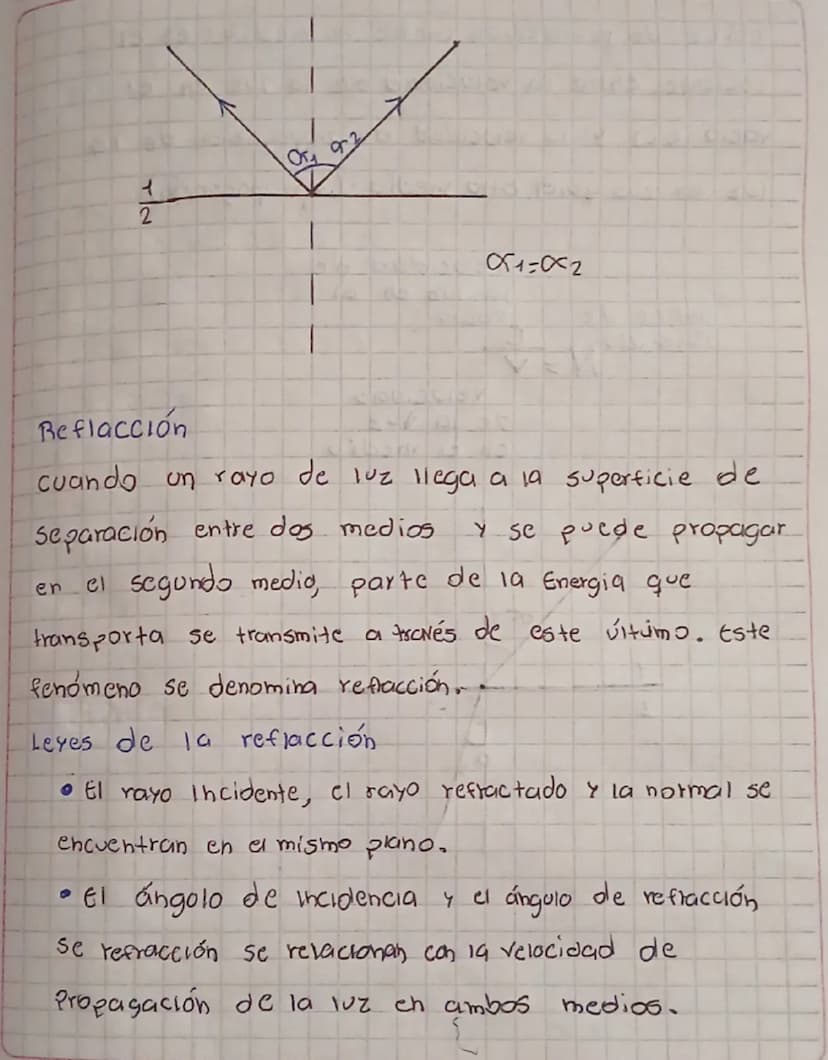 α1 α2
1
2
α1=α2
Reflacción
cuando un rayo de luz llega a la superficie de
separación entre dos medios y se puede propagar
en el segundo medio, parte de la Energia que
transporta se transmite a través de este último. Este
fenómeno se denomina reflacción.
Leyes de la reflacción
• El rayo incidente, el rayo refractado y la normal se
encuentran en el mismo plano.
• El ángolo de incidencia y el ángulo de refracción
se refracción se relacionan con la velocidad de
Propagación de la luz en ambos medios.